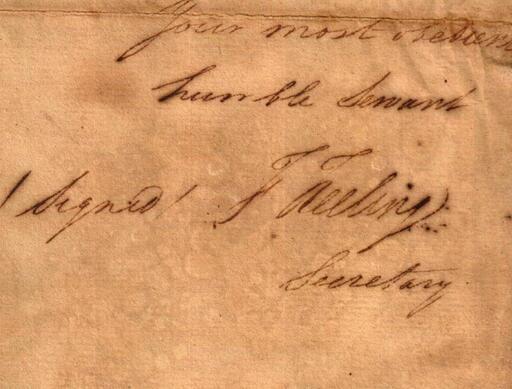 Your most obedien
humble Servant
(Signed) F Freeling
Secretary